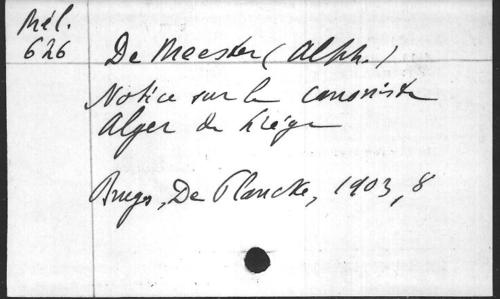 Mél.
626
De Meester (Alph.)
Notice sur le canoniste
Alger de Liége
Bruges, De Plancke, 1903, 8